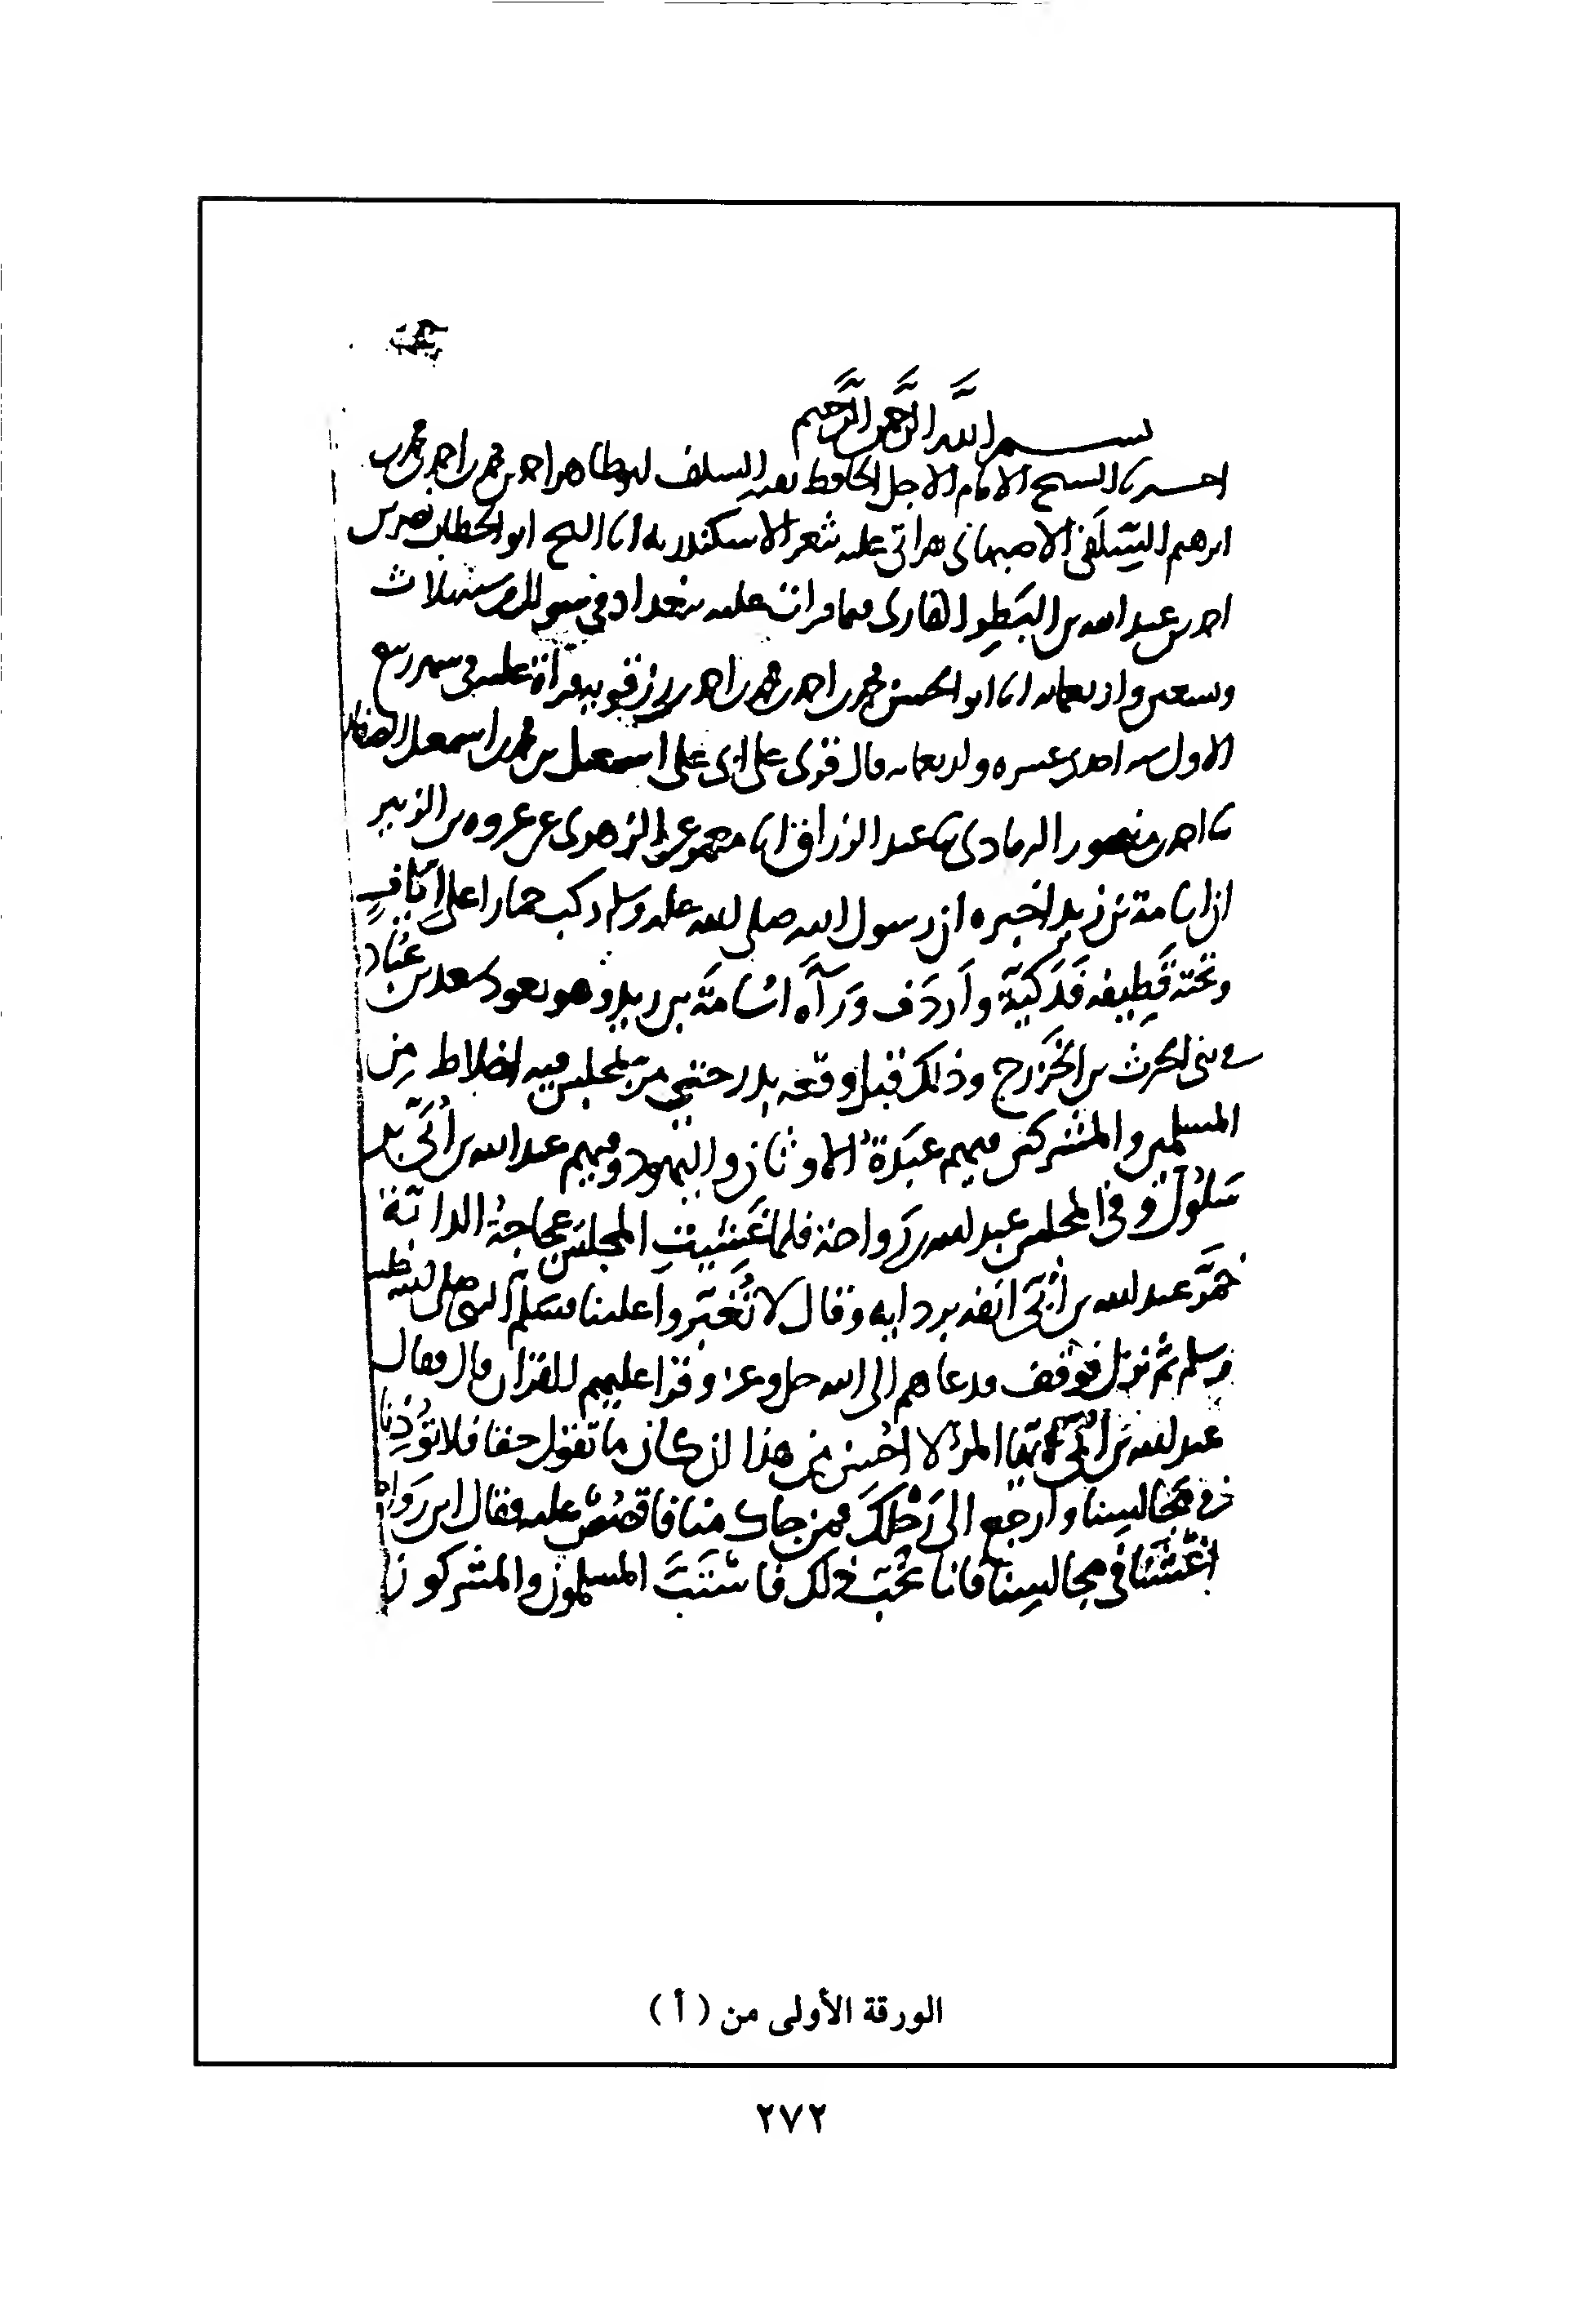 بسم الله الرحمن الرحيم
اخبرنا الشيخ الامام الاجل الحافظ بقية السلف ابو طاهر احمد بن محمد بن احمد بن محمد بن
ابرهيم السِّلَفي الاصبهاني بقراتي عليه بثغر الاسكندرية انا الشيخ ابو الخطاب نصر بن
احمد بن عبد الله بن البَطِر القاري فيما قرات عليه ببغداد في شوال من سنة ثلاث
وتسعين واربعمايه انا ابو الحسن محمد بن احمد بن محمد بن احمد بن رزقويه قراة عليه في شهر ربيع
الاول سنه احدى عشره واربعمايه قال قرى على ابي على اسمعيل بن محمد بن اسمعيل الصفار
نا احمد بن منصور الرمادي نا عبد الرزاق انا معمر عن الزهرى عن عروه بن الزبير
ان اسامة بن زيد اخبره ان رسول الله صلى الله عليه وسلم ركب حمارا على إكاف
وتحته قَطِيفه فَدَكيَّة وأردَف وَرَآه اسَامَة بن زيد وهو يعود سعد بن عُبَاد
في بني الحرث بن الخَزرج وذلك قبل وقعه بدر حتى مرّ بمجلس فيه اخلاط مِن
المسلمين والمشركين فيهم عَبَدَةُ الاوثان واليهود وفيهم عبد الله بن أُبَيّ بن
سَلُول وفي المجلس عبد الله بن رَواحة فلما غَشِيَتِ المجلسَ عجاجةُ الدابّة
خمَّر عبد الله بن أُبَيّ انفه بردايه وقال لا تُغَبّروا علينا فسَلم النبي صلى الله عليه
وسلم ثم نزل فوقف فدعاهم الى الله عز وجل وقرا عليهم القران قال فقال
عبد الله بن أُبَيّ ايّها المرؤ لا احسن من هذا ان كان ما تقول حقا فلا تؤذِنا
في مجالسِنا وارجع الى رَحْلكَ فمن جاك منا فاقصُصْ عليه فقال ابن رَواحة
اغشَنا في مجالسِنا فانا نحُبّ ذلك فاستَبَّ المسلمون والمشركون
الورقة الأولى من ( أ )
٢٧٢